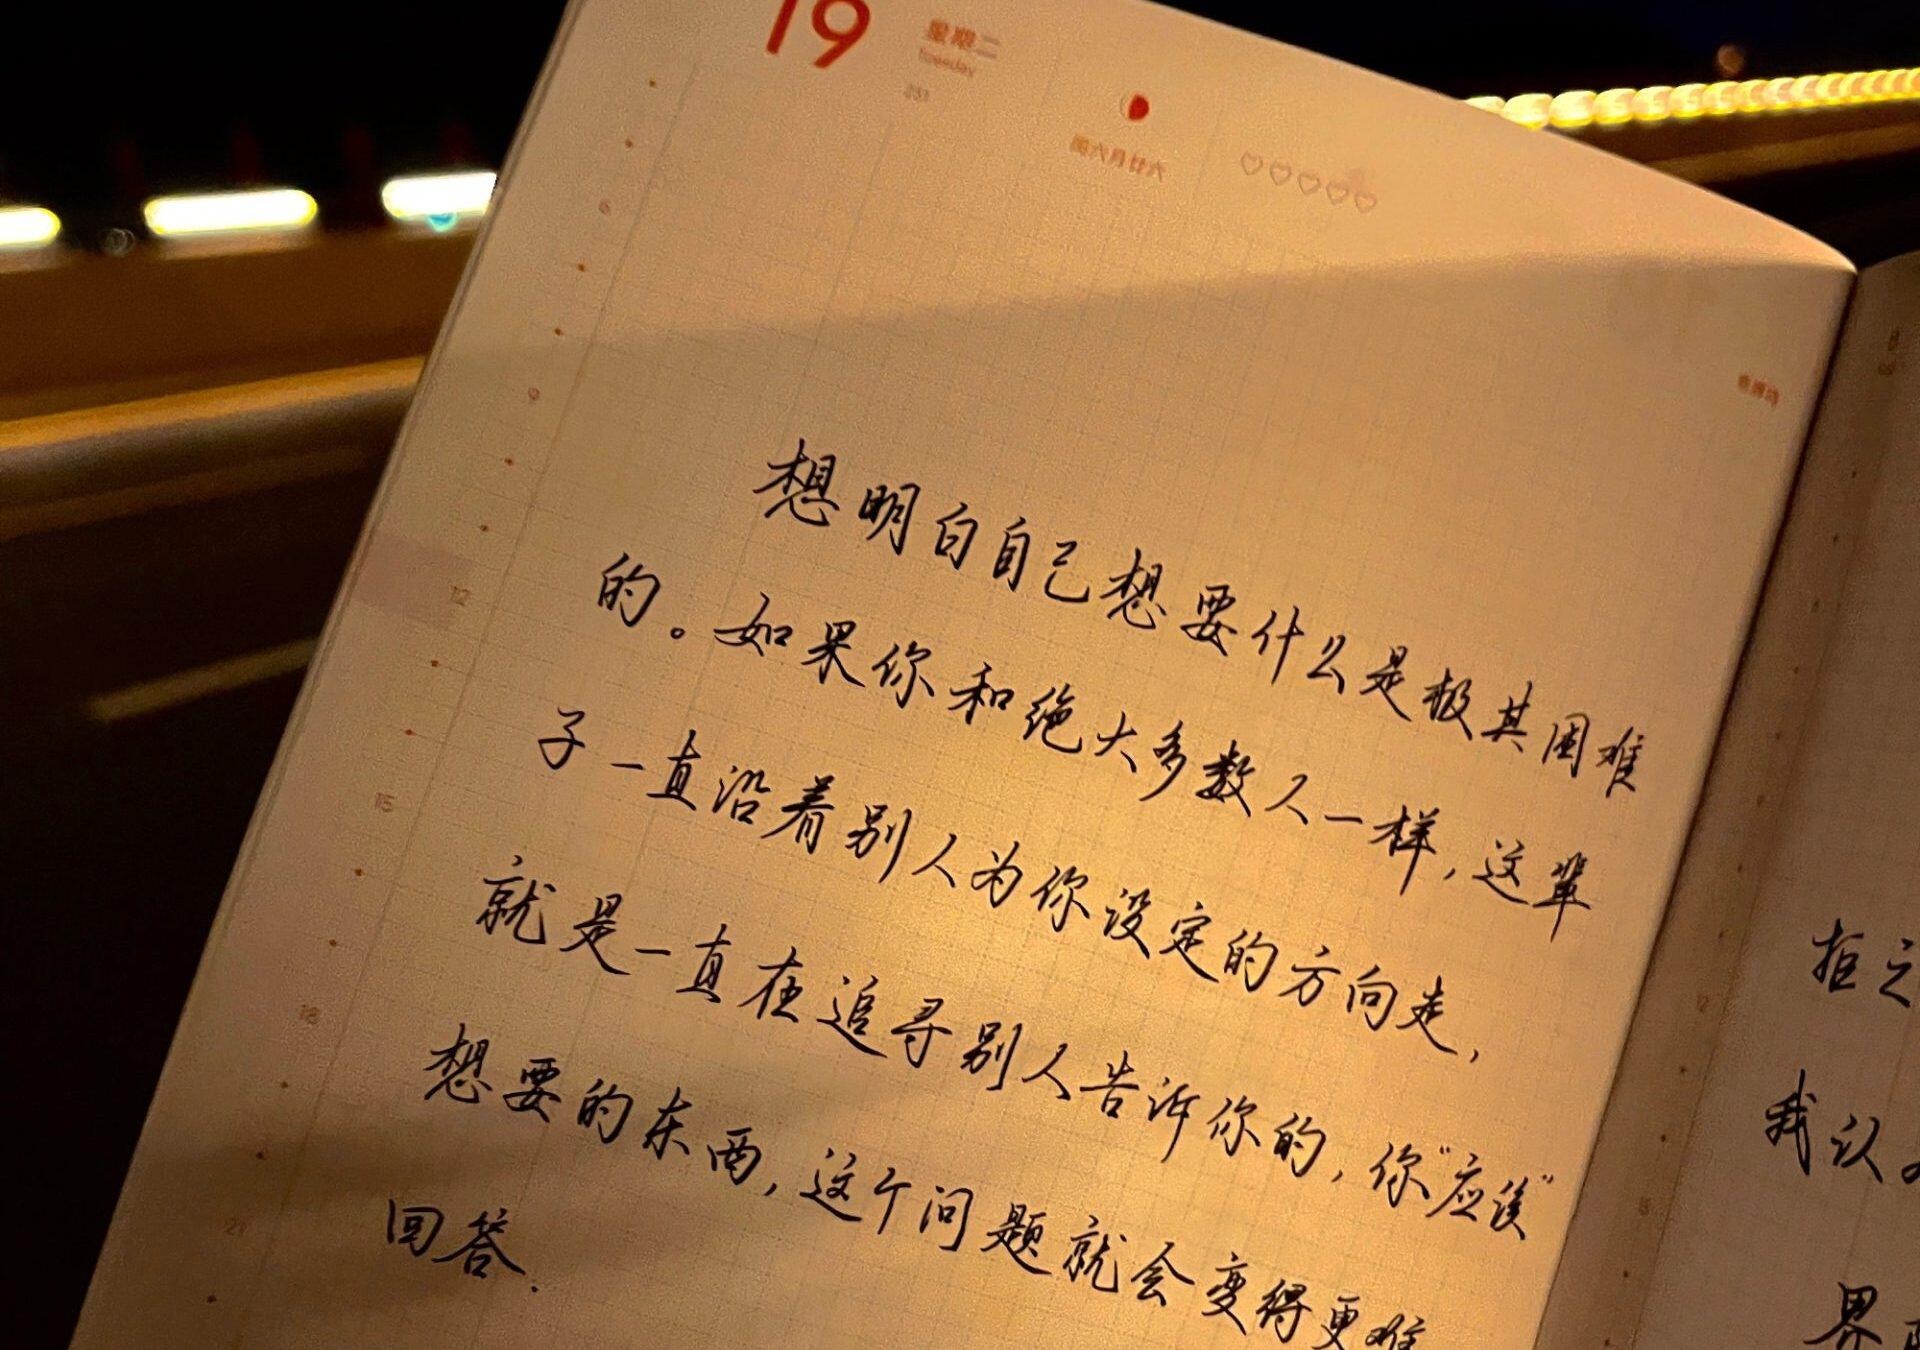 19
星期二
Tuesday
231
闰六月廿六
6
9
12
15
18
21
想明白自己想要什么是极其困难
的。如果你和绝大多数人一样，这辈
子一直沿着别人为你设定的方向走，
就是一直在追寻别人告诉你的，你“应该”
想要的东西，这个问题就会变得更难
回答.
拒之
我认
界